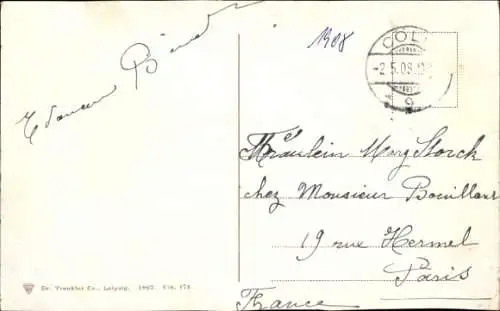 1908
COL
-2.5.08.12
Fräulein Mary Storck
chez Monsieur Bouillons
19 rue Hermel
Paris
France
Dr. Trenkler Co., Leipzig. 1907. Cöl. 174